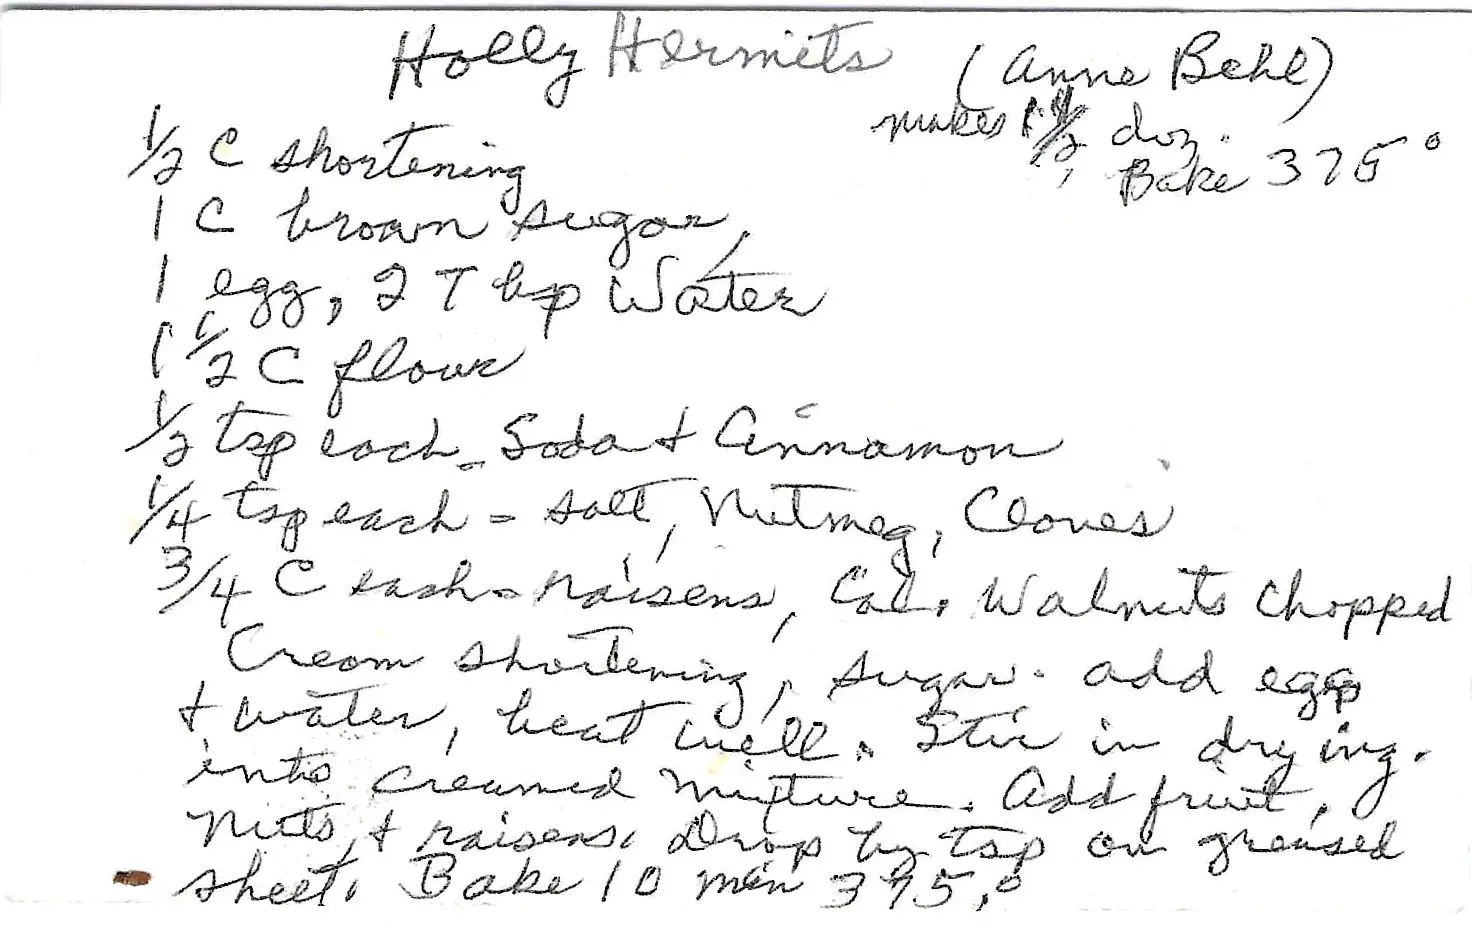 Holly Hermits (Anne Behl)
makes 1 1/2 doz.
Bake 375°
1/2 C shortening
1 C brown sugar,
1 egg, 2 Tbsp Water
1 1/2 C flour
1/2 tsp each - Soda & Cinnamon
1/4 tsp each - salt, Nutmeg, Cloves
3/4 C each - raisens, Cal. Walnuts Chopped
Cream shortening, sugar. add egg
& water, beat well. Stir in dry ing.
into creamed mixture. Add fruit,
nuts, & raisens. Drop by tsp on greased
sheet. Bake 10 min 375°